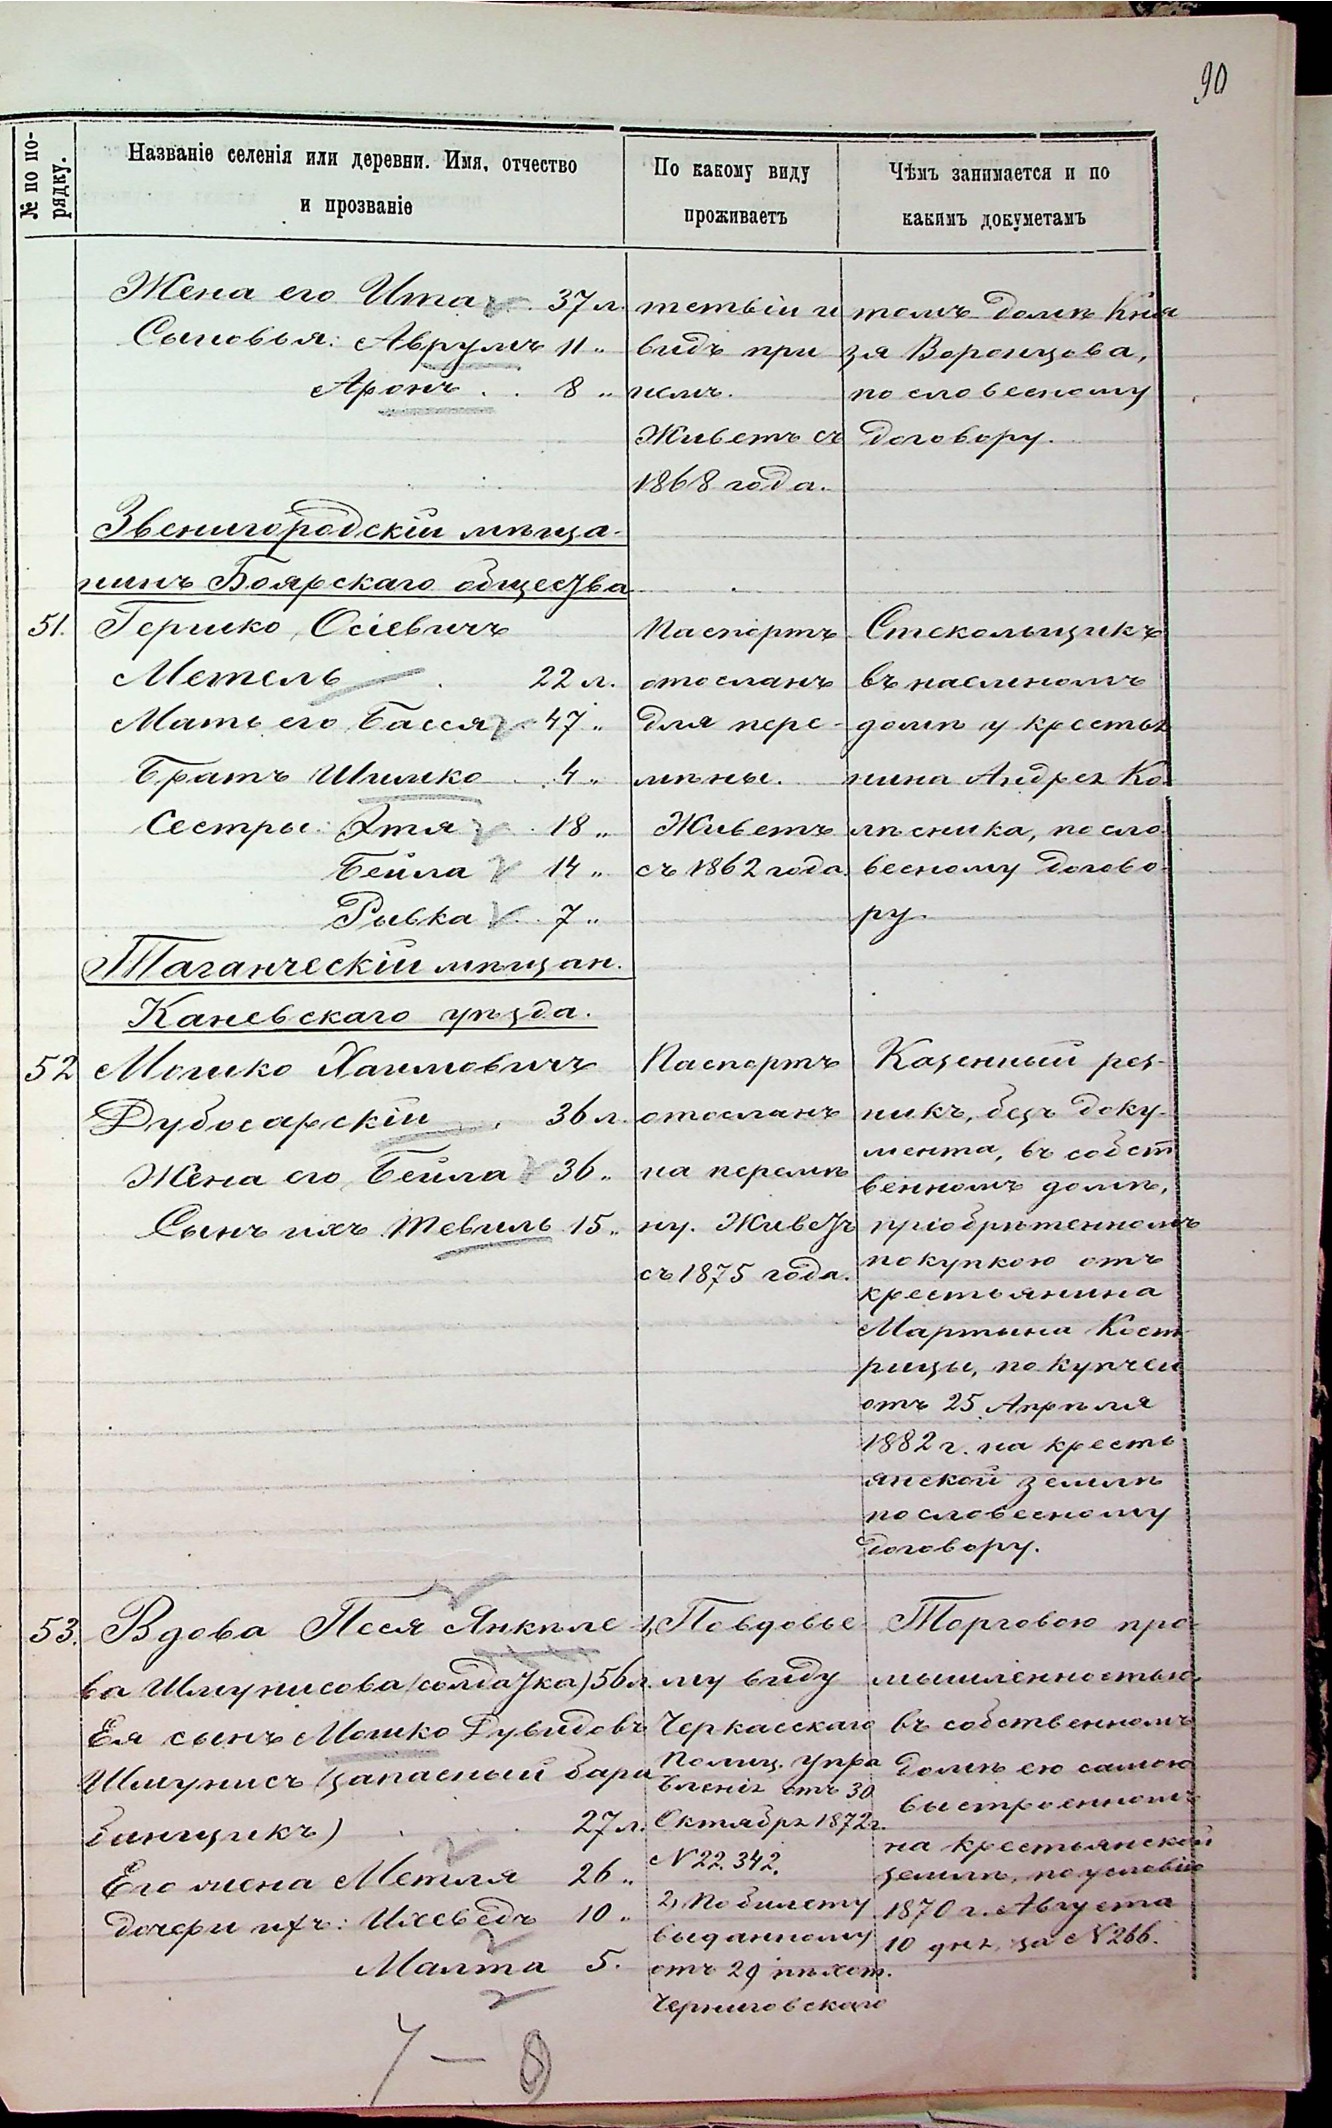 90
№ по по-
рядку.
Названіе селенія или деревни. Имя, отчество
и прозваніе
По какому виду
проживаетъ
Чѣмъ занимается и по
какимъ докуметамъ
Жена его Ита . 37 л.
Сыновья: Аврумъ 11 "
Аронъ . . 8 "
тетвіи и
видъ при
немъ.
Живетъ съ
1868 года.
томъ домѣ Кня
зя Воронцова,
по словесному
договору.
Звенигородскій мѣща-
нинъ Боярскаго общества
51. Гершко Осіевичъ
Метель . 22 л.
Мать его Басся 47 "
Братъ Шимко . 4 "
Сестры: Этя . 18 "
Бейла 14 "
Рывка . 7 "
Паспортъ
отосланъ
для пере-
мѣны.
Живетъ
съ 1862 года.
Стекольщикъ
въ наемномъ
домѣ у крестья
нина Андрея Ко-
лѣсника, по сло-
весному догово-
ру.
Таганческій мѣщан.
Каневскаго уѣзда.
52 Мошко Хаимовичъ
Дубосарскій . 36 л.
Жена его Бейла 36 "
Сынъ ихъ Тевель 15 "
Паспортъ
отосланъ
на перемѣ
ну. Живетъ
съ 1875 года.
Казенный рез-
никъ, безъ доку-
мента, въ собст
венномъ домѣ,
пріобрѣтенномъ
покупкою отъ
крестьянина
Мартина Кост-
рицы, по купчей
отъ 25 Апрѣля
1882 г. на кресть
янской землѣ
по словесному
договору.
53. Вдова Песя Янкеле
ва Шмунисова (солдатка) 56 л.
Ея сынъ Мошко Дувидовъ
Шмунисъ (запасный бара
банщикъ) . . 27 л.
Его жена Метля 26 "
дочери ихъ: Ихеведъ 10 "
Малта 5.
1, По вдовье
му виду
Черкасскаго
Полиц. Упра
вленія отъ 30
Октября 1872 г.
N 22.342.
2) По билету
выданному
отъ 29 пѣхот.
Черниговскаго
Торговою про-
мышленностью
въ собственномъ
домѣ ею самою
выстроенномъ
на крестьянской
землѣ, по условію
1870 г. Августа
10 дня, за N 266.
7 — 8